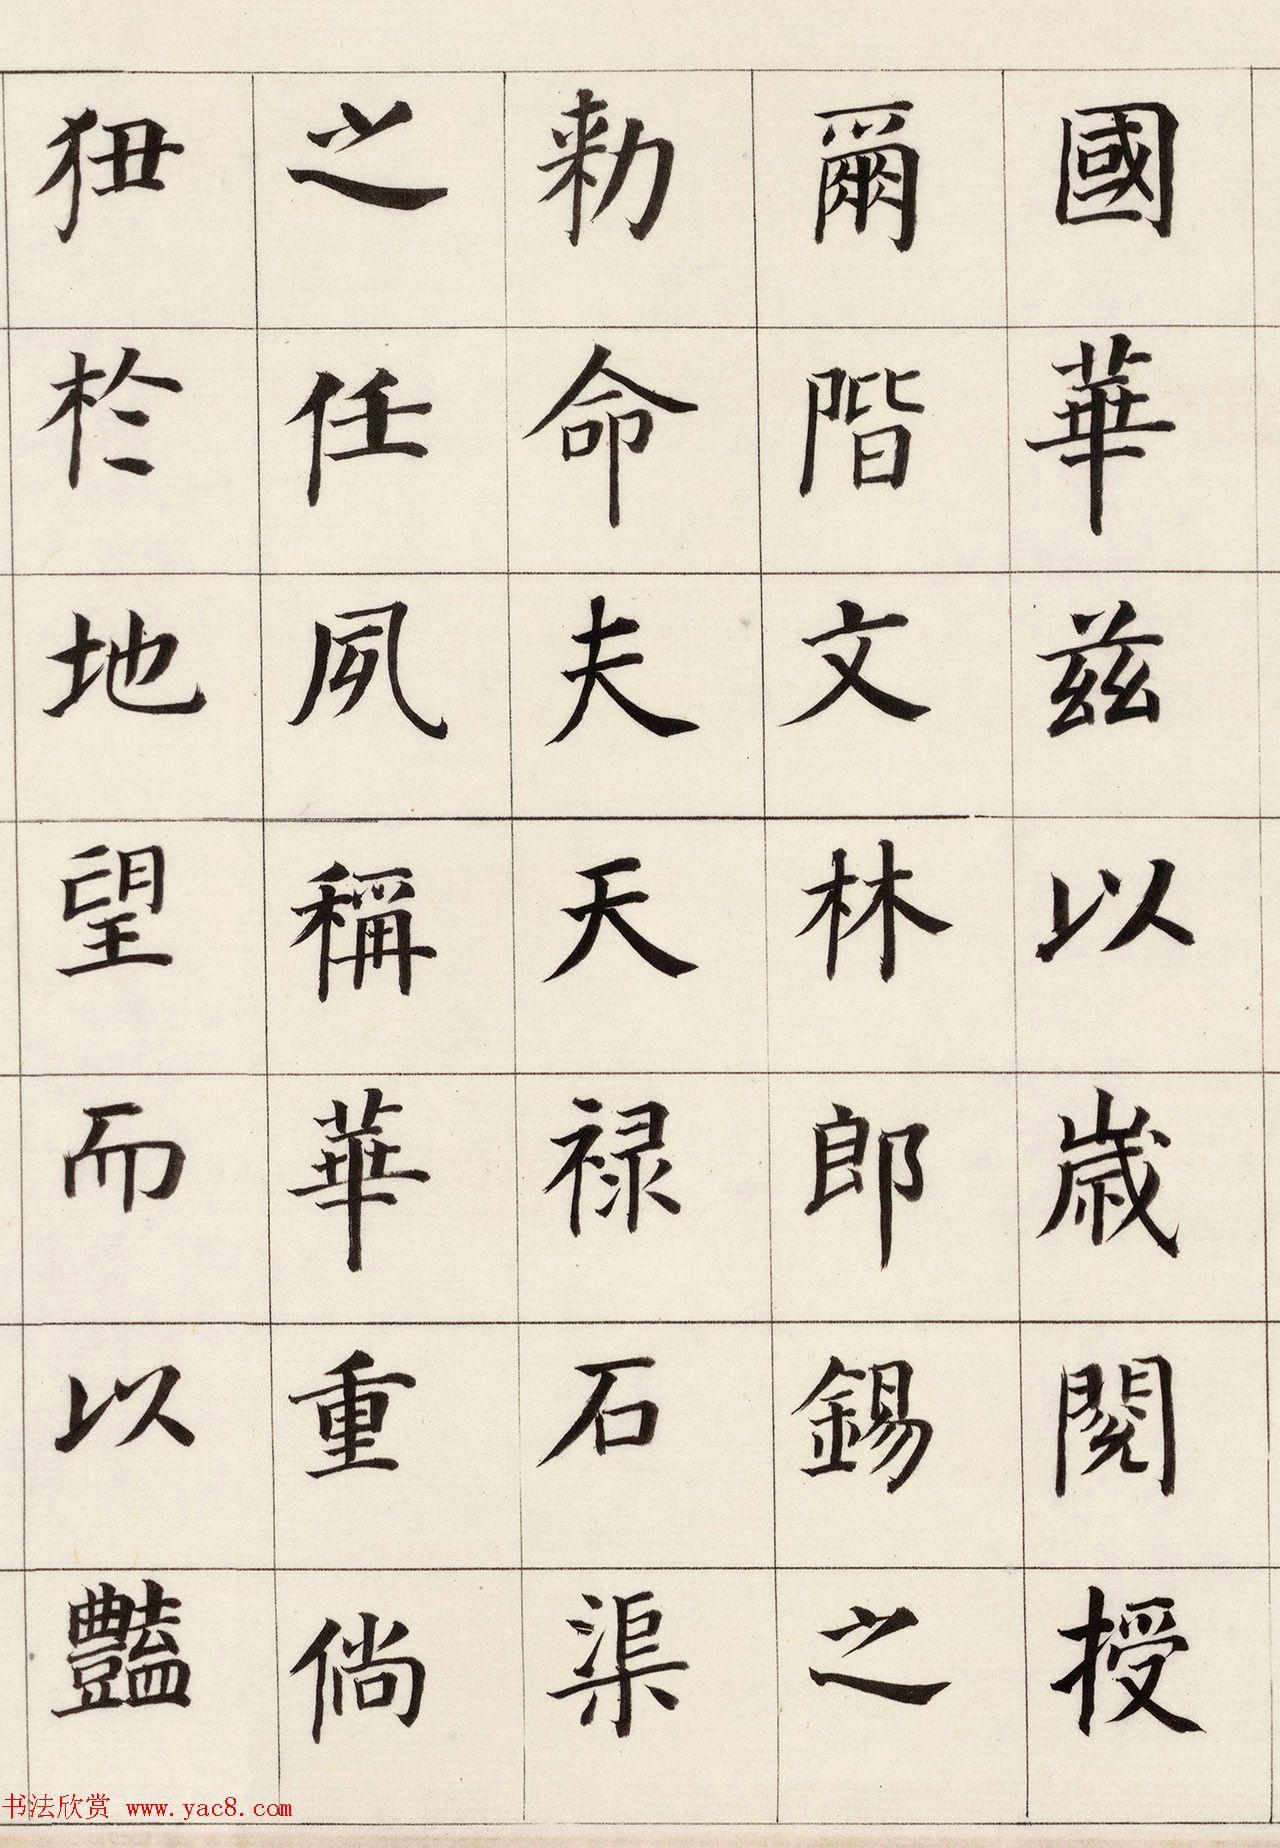 國華兹以歲閱授
爾階文林郎錫之
勑命夫天禄石渠
之任夙稱華重倘
狃於地望而以豔
书法欣赏 www.yac8.com